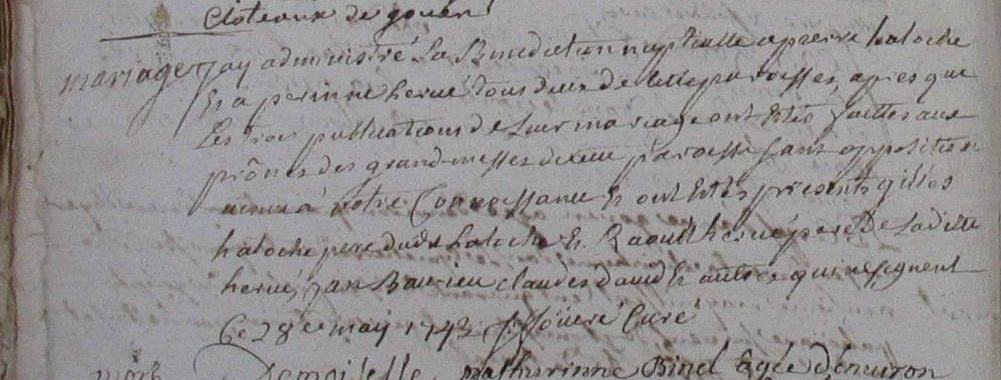 Cloteaux de gouen
mariage Jay administré La Benediction nuptialle a pierre haloche
Et a perinne hervé tous deux de cette paroisse, apres que
Les trois publications de Leur mariage ont Estés faittes aux
prônes des grand messes de cette paroisse sans opposition
venue à notre Connoissance Et ont Estés présents gilles
haloche pere dudt haloche Et Raoul hervé pere de Laditte
hervé, Jan Barrieu claudes david Et autres qui ne signent
Ce 28e may 1743 Curé
mort Demoiselle mathurinne Binel Agée d'Enuiron